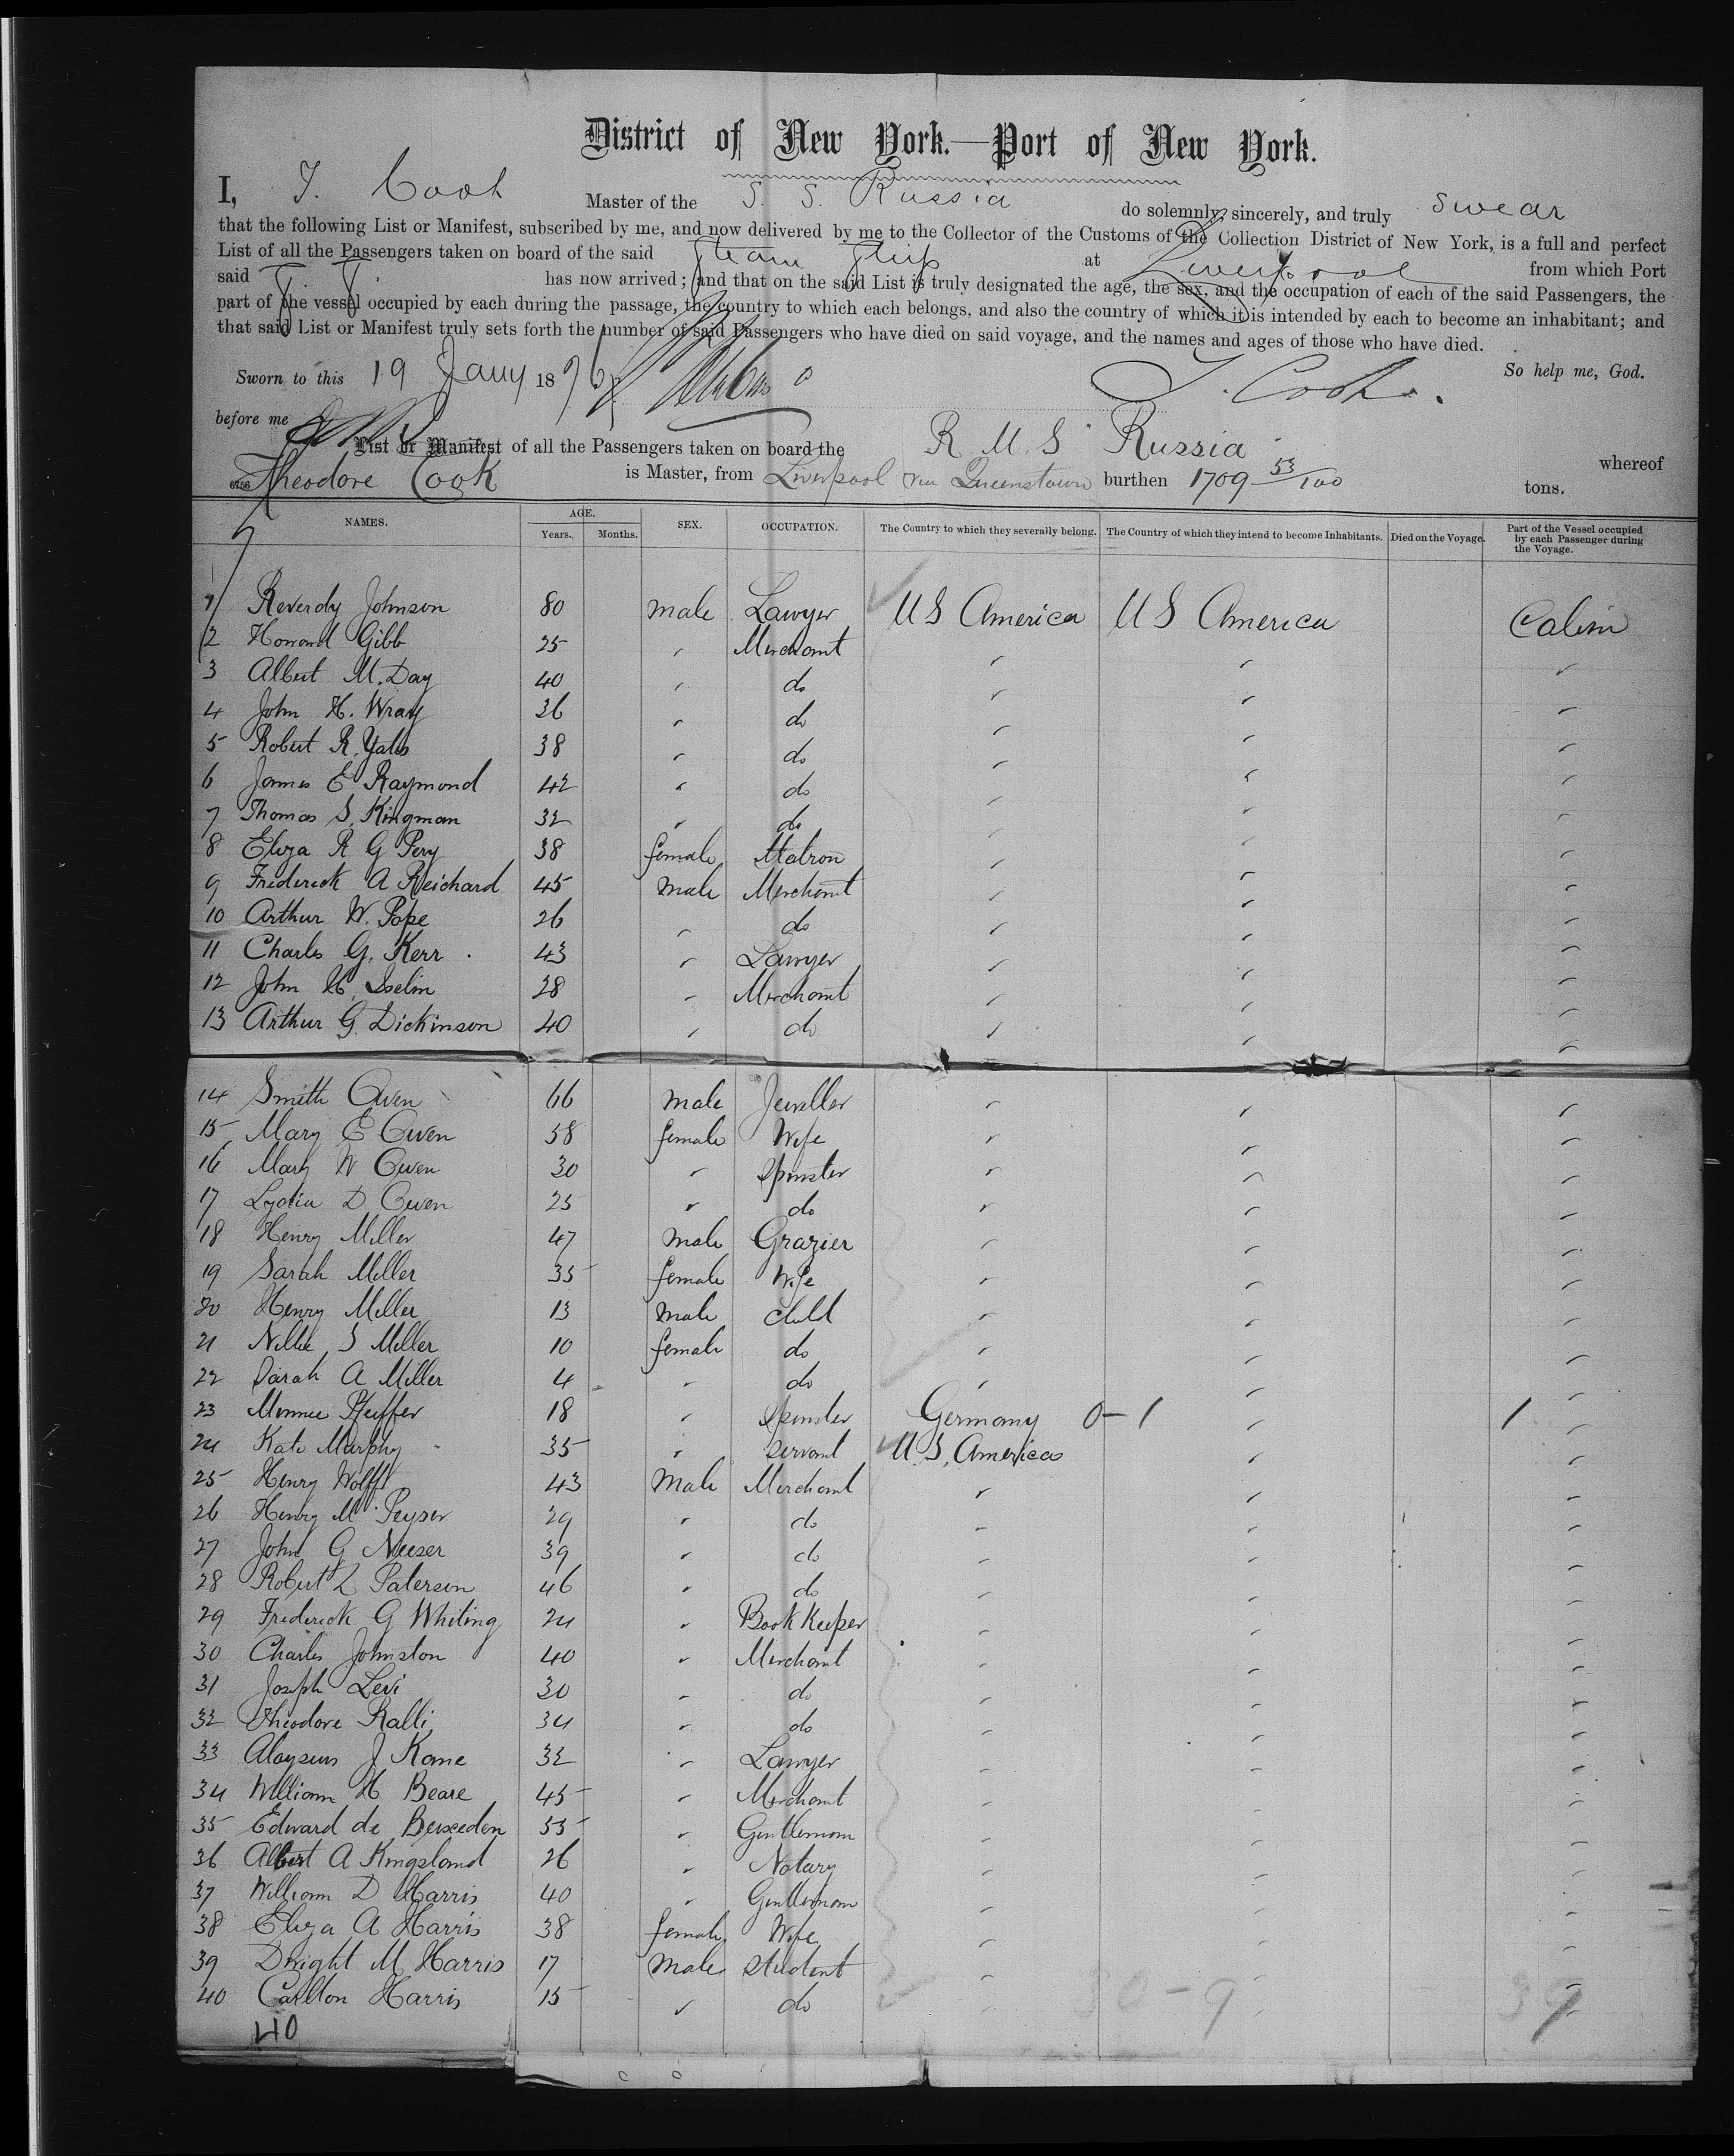 District of New York.—Port of New York.
I, T. Cook Master of the S. S. Russia do solemnly, sincerely, and truly swear
that the following List or Manifest, subscribed by me, and now delivered by me to the Collector of the Customs of the Collection District of New York, is a full and perfect
List of all the Passengers taken on board of the said Steam Ship at Liverpool from which Port
said S. S. has now arrived; and that on the said List is truly designated the age, the sex, and the occupation of each of the said Passengers, the
part of the vessel occupied by each during the passage, the country to which each belongs, and also the country of which it is intended by each to become an inhabitant; and
that said List or Manifest truly sets forth the number of said Passengers who have died on said voyage, and the names and ages of those who have died.
Sworn to this 19 Jany 1876 T. Cook. So help me, God.
before me
List or Manifest of all the Passengers taken on board the R M S Russia whereof
6756 Theodore Cook is Master, from Liverpool via Queenstown burthen 1709 53/100 tons.
NAMES. AGE. Years. Months. SEX. OCCUPATION. The Country to which they severally belong. The Country of which they intend to become Inhabitants. Died on the Voyage. Part of the Vessel occupied by each Passenger during the Voyage.
1 Reverdy Johnson 80 male Lawyer U S America U S America Cabin
2 Gibb 25 " Merchant " " "
3 Albert M. Day 40 " do " " "
4 John H. Wray 36 " do " " "
5 Robert R. Yates 38 " do " " "
6 James E Raymond 42 " do " " "
7 Thomas S. Kingman 32 " do " " "
8 Eliza R G Pery 38 female Matron " " "
9 Frederick A Reichard 45 male Merchant " " "
10 Arthur W. Pope 26 " do " " "
11 Charles G. Kerr 43 " Lawyer " " "
12 John H. Iselin 28 " Merchant " " "
13 Arthur G. Dickinson 40 " do " " "
14 Smith Owen 66 male Jeweller " " "
15 Mary E Owen 58 female Wife " " "
16 Mary W Owen 30 " Spinster " " "
17 Lydia D Owen 25 " do " " "
18 Henry Miller 47 male Grazier " " "
19 Sarah Miller 35 female Wife " " "
20 Henry Miller 13 male child " " "
21 Nellie S Miller 10 female do " " "
22 Sarah A Miller 4 " do " " "
23 Minnie Pfeiffer 18 " Spinster Germany 0-1 " 1 "
24 Kate Murphy 35 " servant U.S. America " "
25 Henry Wolff 43 Male Merchant " " "
26 Henry M Peyser 29 " do " " "
27 John G Neeser 39 " do " " "
28 Robert L Paterson 46 " do " " "
29 Frederick G Whiting 24 " Book Keeper " " "
30 Charles Johnston 40 " Merchant " " "
31 Joseph Levi 30 " do " " "
32 Theodore Ralli 34 " do " " "
33 Aloysius J Kane 32 " Lawyer " " "
34 William H Beare 45 " Merchant " " "
35 Edward de 55 " Gentleman " " "
36 Albert A Kingsland 26 " Notary " " "
37 William D Harris 40 " Gentleman " " "
38 Eliza A Harris 38 female Wife " " "
39 Dwight M Harris 17 male Student " " "
40 Carlton Harris 15 " do " 30-9 " 39 "
40